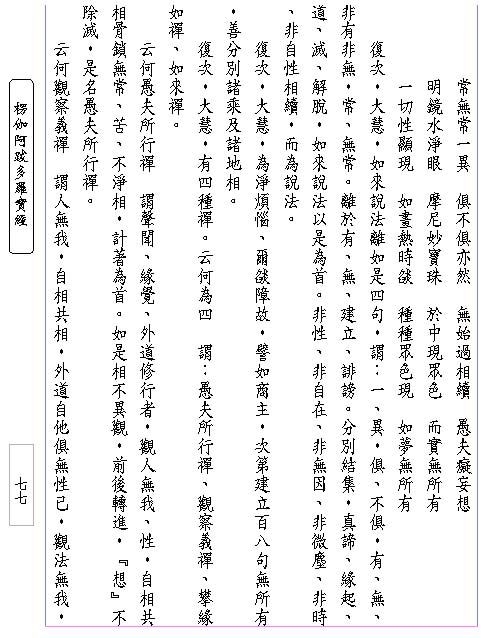 常無常一異　俱不俱亦然　無始過相續　愚夫癡妄想
明鏡水淨眼　摩尼妙寶珠　於中現眾色　而實無所有
一切性顯現　如畫熱時燄　種種眾色現　如夢無所有
復次，大慧，如來說法離如是四句，謂：一、異，俱、不俱，有、無、
非有非無，常、無常。離於有、無、建立、誹謗。分別結集，真諦、緣起、
道、滅、解脫，如來說法以是為首。非性、非自在、非無因、非微塵、非時
、非自性相續，而為說法。
復次，大慧，為淨煩惱、爾燄障故，譬如商主，次第建立百八句無所有
，善分別諸乘及諸地相。
復次，大慧，有四種禪。云何為四　謂：愚夫所行禪、觀察義禪、攀緣
如禪、如來禪。
云何愚夫所行禪　謂聲聞、緣覺、外道修行者，觀人無我、性，自相共
相骨鎖無常、苦、不淨相，計著為首。如是相不異觀，前後轉進，『想』不
除滅，是名愚夫所行禪。
云何觀察義禪　謂人無我，自相共相，外道自他俱無性已，觀法無我，
楞伽阿跋多羅寶經
七七